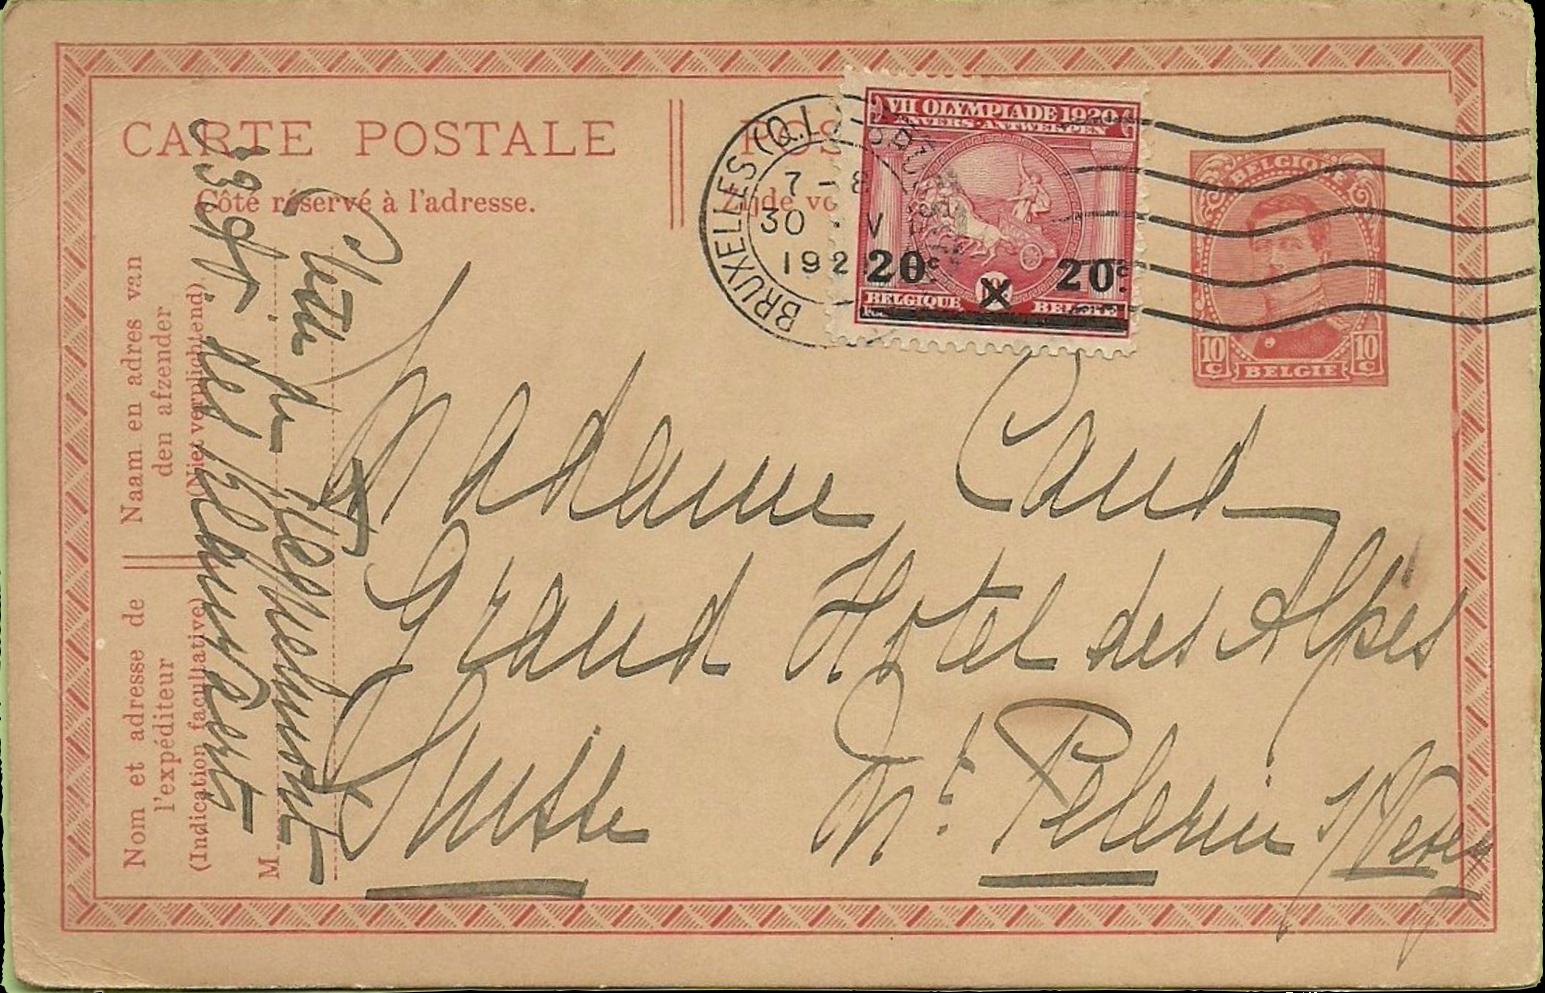 CARTE POSTALE
POS
Côté réservé à l'adresse.
Zijde vo
BRUXELLES (Q.L.)
7 - 8
30 V
192
VII OLYMPIADE 1920
ANVERS-ANTWERPEN
20c 20c
BELGIQUE BELGIË
BELGIQUE
10 c 10 c
BELGIE
Naam en adres van
den afzender
(Niet verplichtend)
Nom et adresse de
l'expéditeur
(Indication facultative)
M
Madame Caud
Grand Hotel des Alpes
Mt Pelerin s/Vevey
Suisse